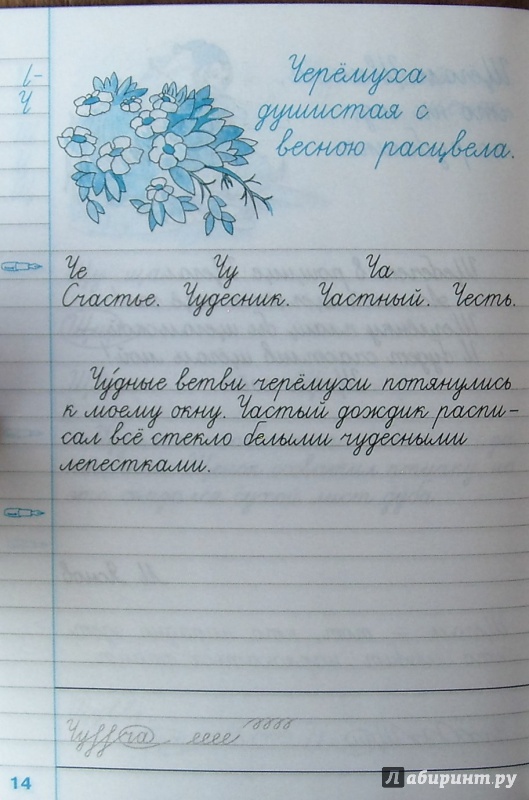 Черёмуха
душистая с
весною расцвела.
Че Чу Ча
Счастье. Чудесник. Частный. Честь.
Чу́дные ветви черёмухи потянулись
к моему окну. Частый дождик распи-
сал всё стекло белыми чудесными
лепестками.
14
Лабиринт.ру